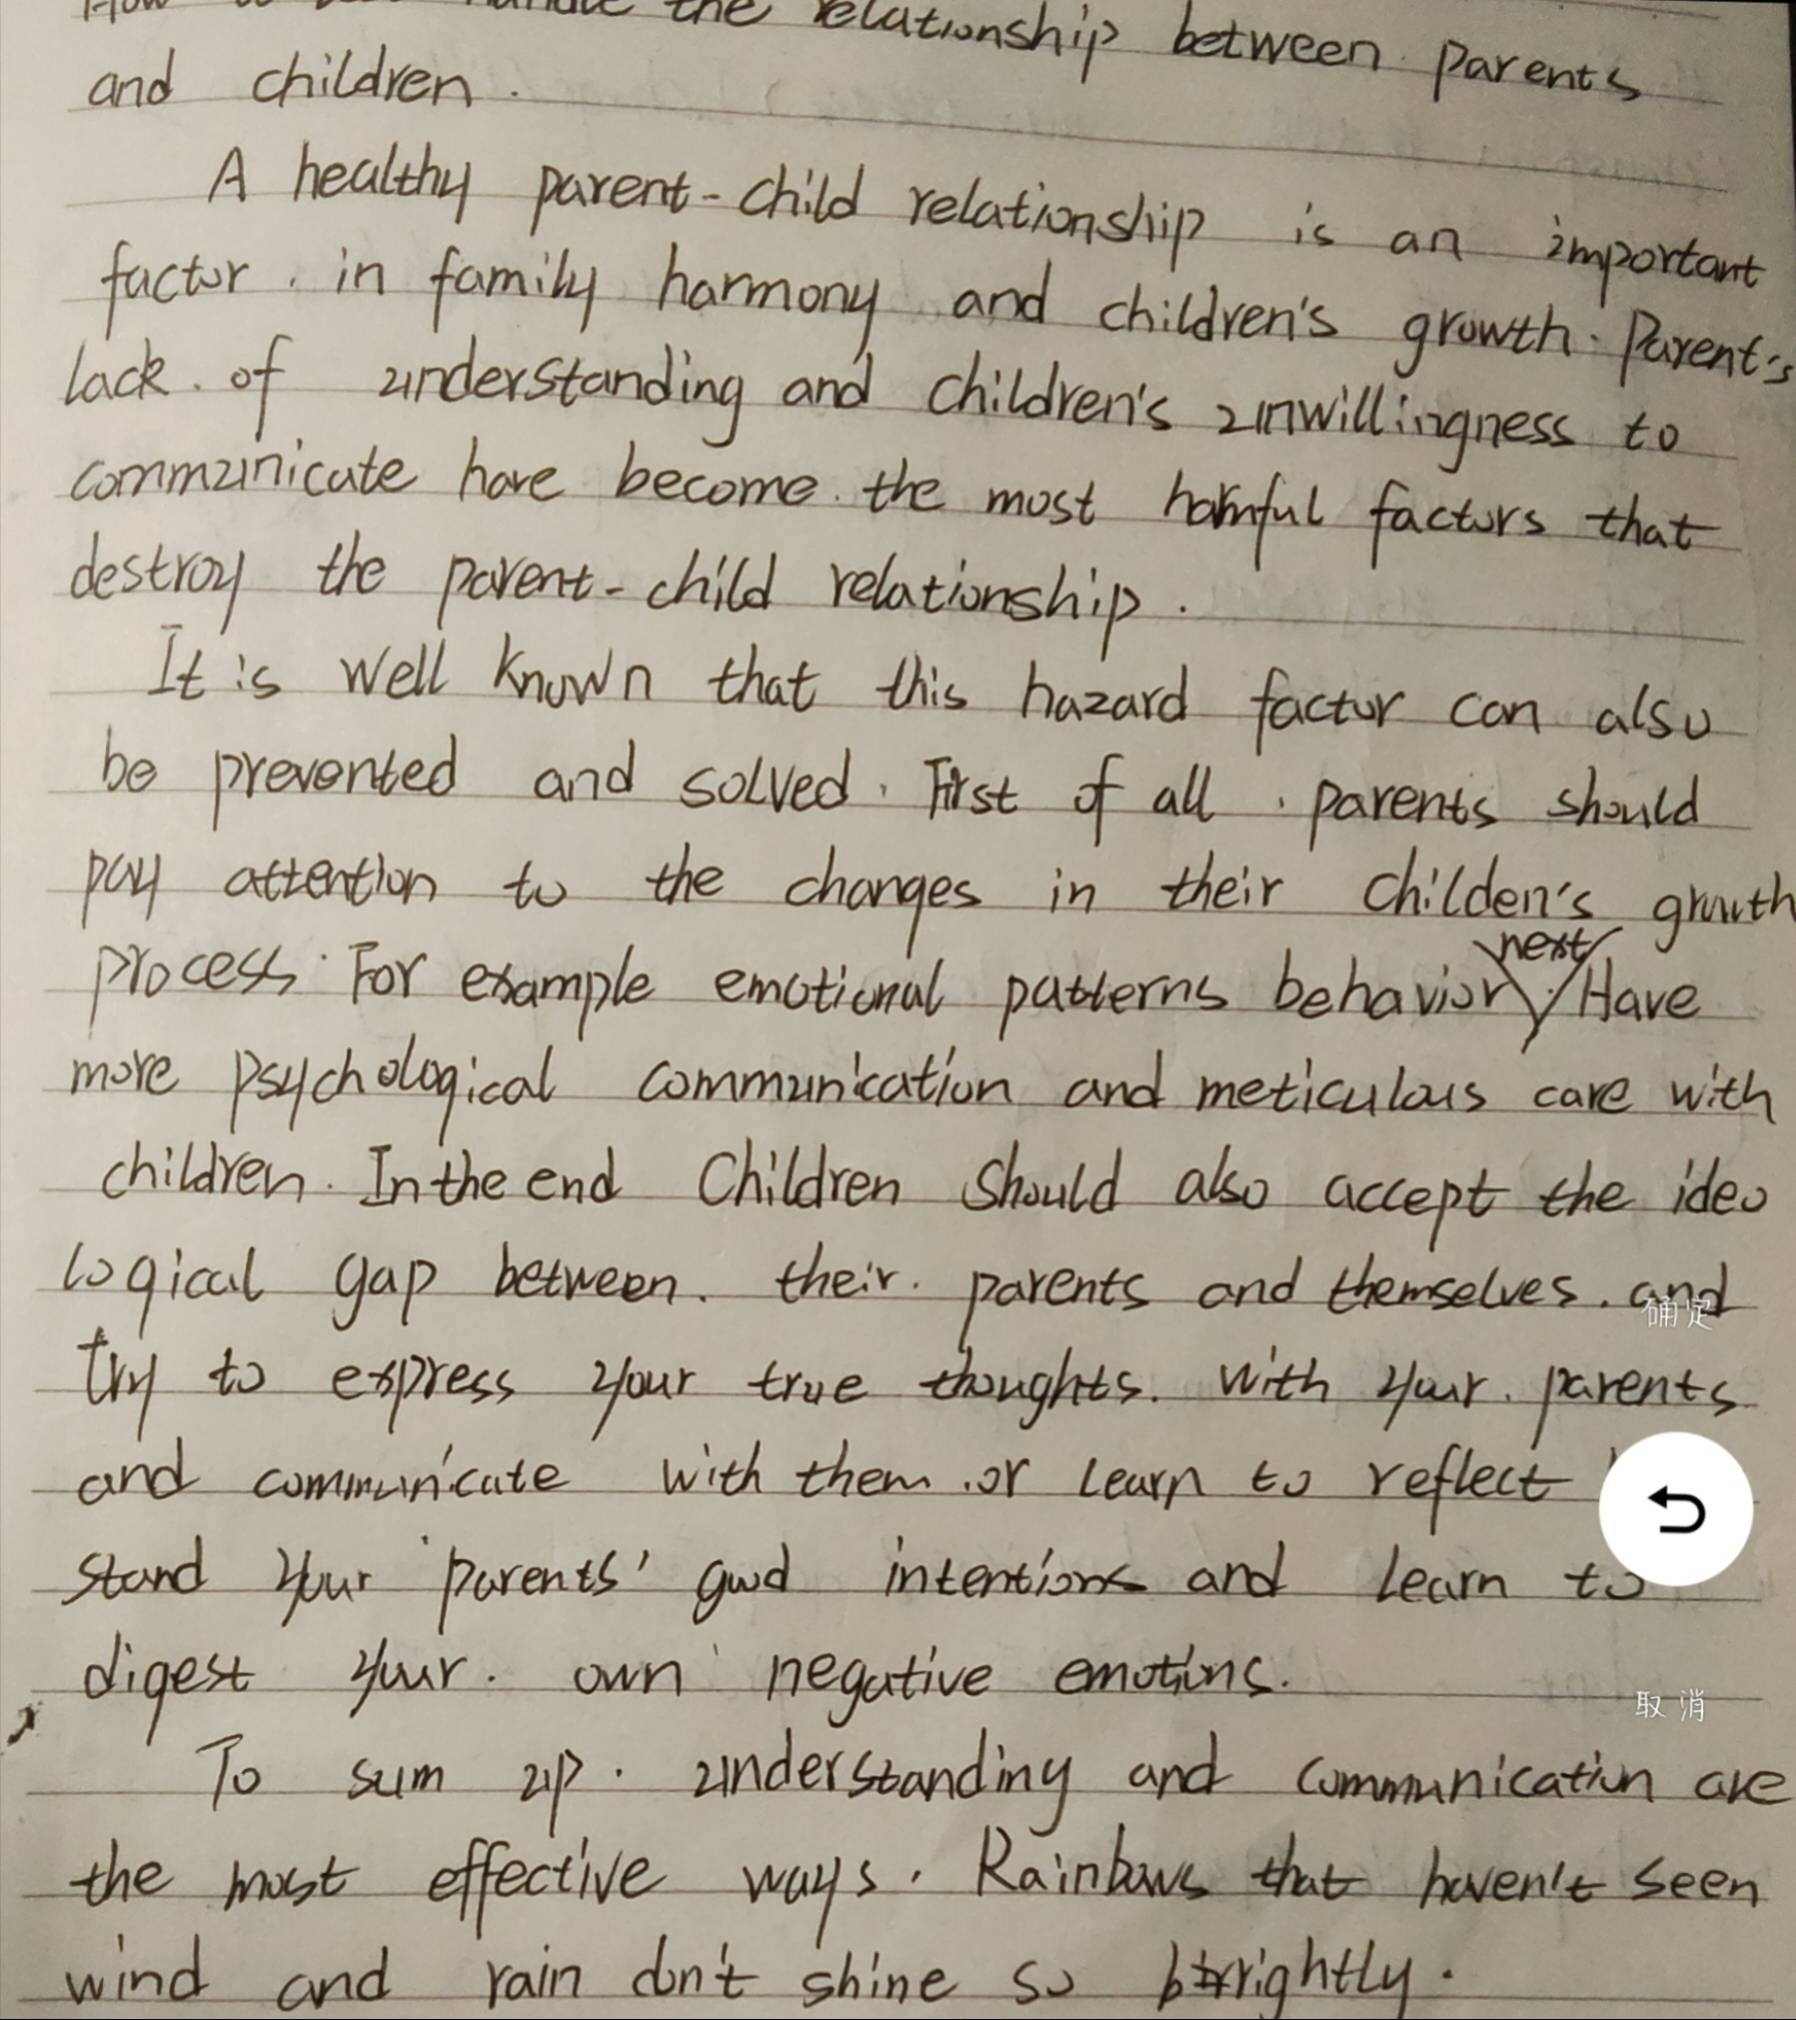 the relationship between parents
and children.
A healthy parent-child relationship is an important
factor in family harmony and children's growth. Parent's
lack of understanding and children's unwillingness to
communicate have become the most harmful factors that
destroy the parent-child relationship.
It is well known that this hazard factor can also
be prevented and solved. First of all, parents should
pay attention to the changes in their childen's growth
process. For example emotional patterns behavior. next Have
more psychological communication and meticulous care with
children. In the end Children should also accept the ideo
logical gap between their parents and themselves. and
确定
try to express your true thoughts. with your parents
and communicate with them. or learn to reflect
stand your parents' good intentions and learn to
digest your own negative emotions.
取消
To sum up. understanding and communication are
the most effective ways. Rainbows that haven't seen
wind and rain don't shine so brightly.